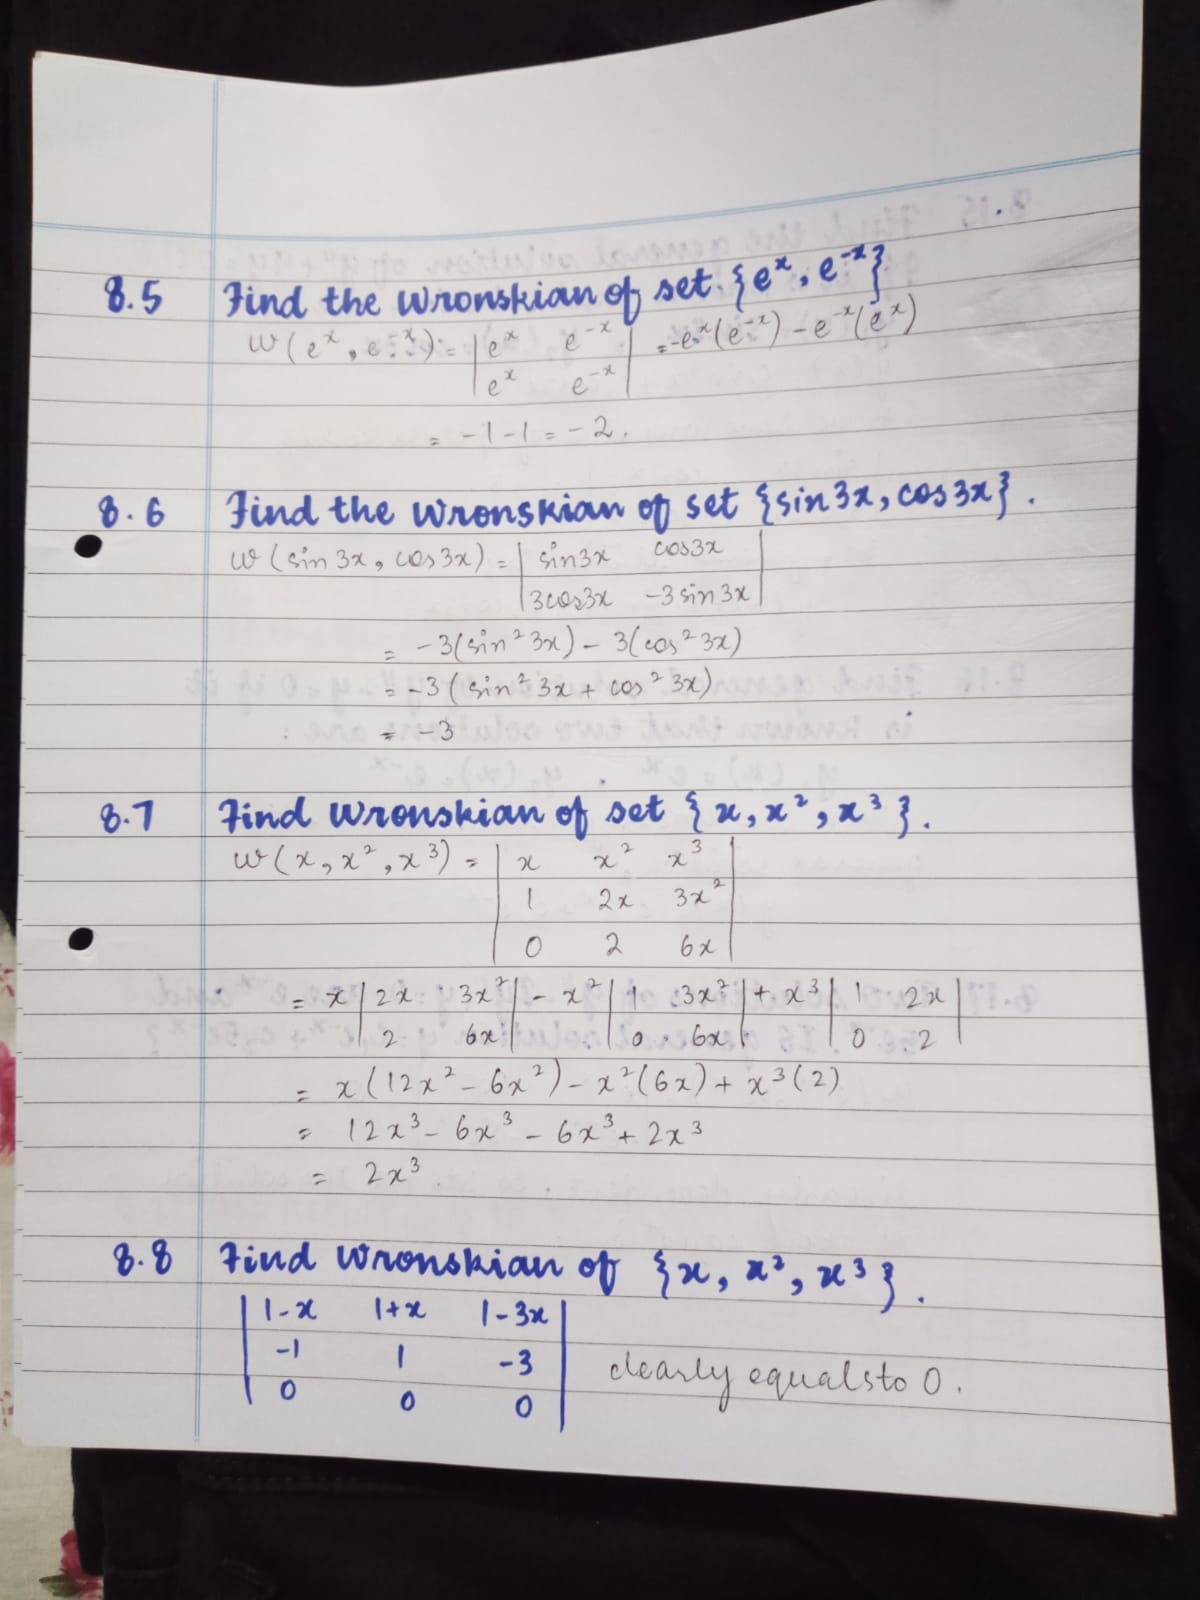 8.5 Find the Wronskian of set {eˣ, e⁻ˣ}
W(eˣ, e⁻ˣ) = | eˣ e⁻ˣ | = -eˣ(e⁻ˣ) - e⁻ˣ(eˣ)
| eˣ e⁻ˣ |
= -1-1 = -2.
8.6 Find the Wronskian of set {sin3x, cos3x}.
W(sin 3x, cos 3x) = | sin3x cos3x |
| 3cos3x -3sin3x |
= -3(sin²3x) - 3(cos²3x)
= -3(sin²3x + cos²3x)
= -3
8.7 Find Wronskian of set {x, x², x³}.
W(x, x², x³) = | x x² x³ |
| 1 2x 3x² |
| 0 2 6x |
= x | 2x 3x² | - x² | 1 3x² | + x³ | 1 2x |
| 2 6x | | 0 6x | | 0 2 |
= x(12x² - 6x²) - x²(6x) + x³(2)
= 12x³ - 6x³ - 6x³ + 2x³
= 2x³
8.8 Find Wronskian of {x, x², x³}.
| 1-x 1+x 1-3x |
| -1 1 -3 | clearly equals to 0.
| 0 0 0 |